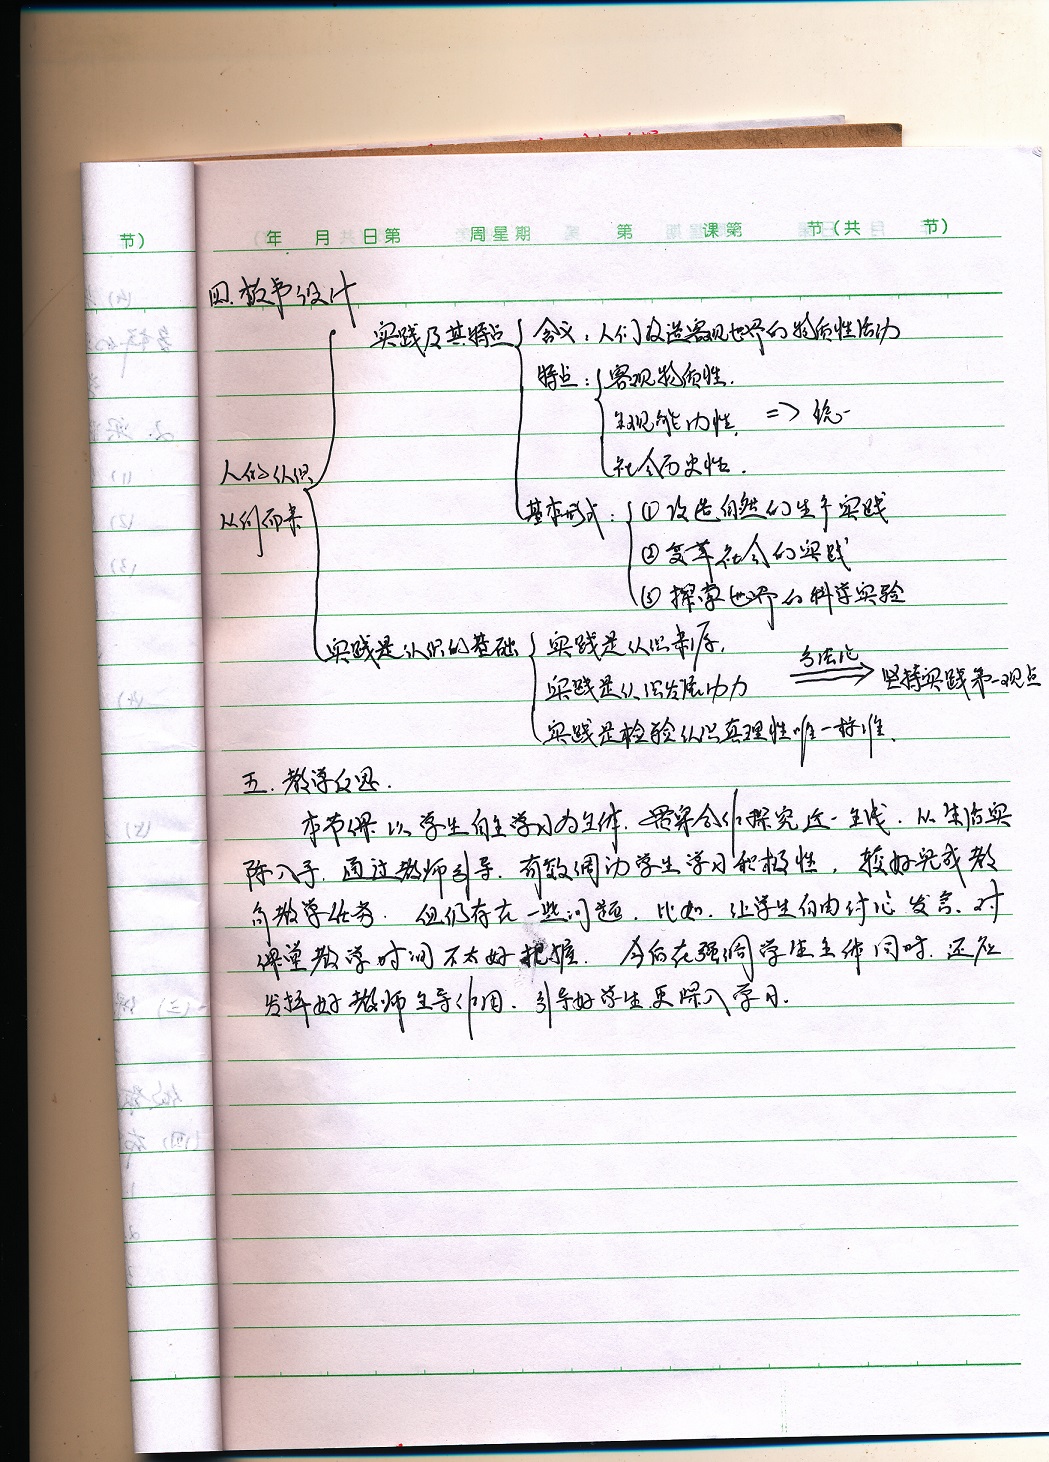 节)
年 月 日第 周星期 第 课第 节(共 节)
四.板书设计
实践及其特点 含义：人们改造客观世界的物质性活动
特点： 客观物质性.
主观能动性. => 统一
社会历史性.
人的认识
从何而来
基本形式： ①改造自然的生产实践
②变革社会的实践
③探索世界的科学实验
实践是认识的基础 实践是认识来源,
方法论
实践是认识发展动力 坚持实践第一观点
实践是检验认识真理性唯一标准.
五.教学反思.
本节课以学生自主学习为主体.贯穿合作探究这一主线.从生活实
际入手.通过教师引导.有效调动学生学习积极性,较好完成教
学任务.但仍存在一些问题,比如.让学生自由讨论发言、对
课堂教学时间不太好把握.今后在强调学生主体同时.还应
发挥好教师主导作用.引导好学生更深入学习.